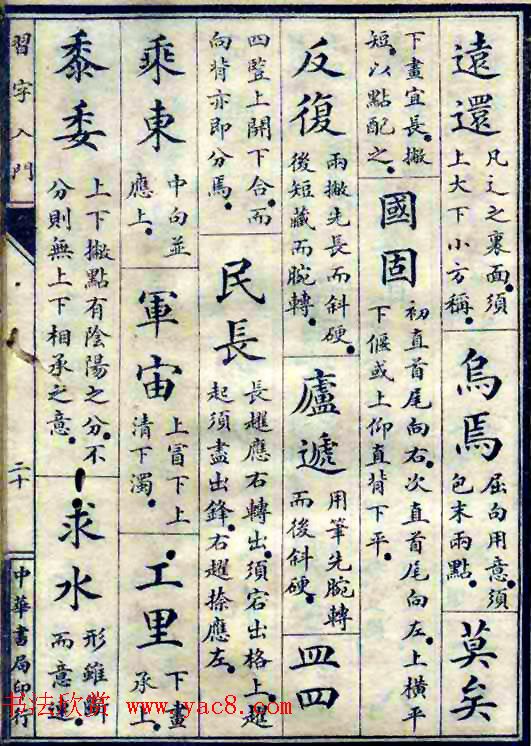 遠還
凡辶之裏面須
上大下小方稱
烏焉
屈向用意須
包末兩點
莫矣
下畫宜長撇
短以點配之
國固
初直首尾向右次直首尾向左上橫平
下偃或上仰直背下平
反復
兩撇先長而斜硬
後短藏而腕轉
廬遞
用筆先腕轉
而後斜硬
皿四
四豎上開下合而
向背亦即分焉
民長
長趯應右轉出須宕出格上趯
起須盡出鋒右趯捺應左
乘東
中向並
應上
軍宙
上冒下上
清下濁
工里
下畫
承上
黍委
上下撇點有陰陽之分不
分則無上下相承之意
求水
形雖斷
而意連
習字入門
二十
中華書局印行
书法欣赏 www.yac8.com